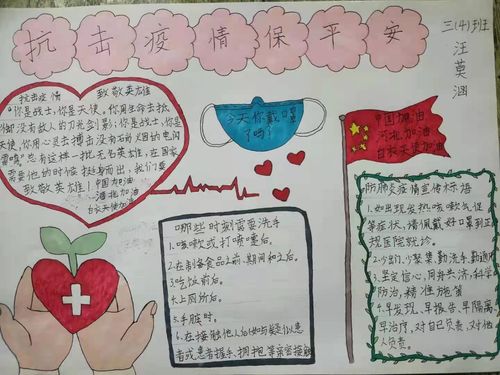 抗击疫情保平安
三(4)班
汪莫涵
抗击疫情 致敬英雄
你是战士,你是天使。你用生命去抵
御没有敌人的刀光剑影;你是战士,你是
天使,你用心灵去搏击没有石
雷鸣!总有这样一批无名英雄,在国家
需要他的时候挺身而出,我们要
致敬英雄!中国加油
白衣天使加油
今天你戴口罩
了吗?
中国加油
河北加油
白衣天使加油
哪些时刻需要洗手
1.咳嗽或打喷嚏后。
2.在制备食品之前、期间和之后。
3.吃饭前后。
4.上厕所后。
5.手脏时。
6.在接触他人后(如与疑似患
者或患者握手、拥抱等亲密接触
防肺炎疫情宣传标语
1.如出现发热咳嗽气促
等症状,请佩戴好口罩到正
规医院就诊。
2.少出门、少聚集、勤洗手、勤通风
3.坚定信心,同舟共济,科学
防治,精准施策
4.早发现、早报告、早隔离、
早治疗,对自己负责、对他
人负责。